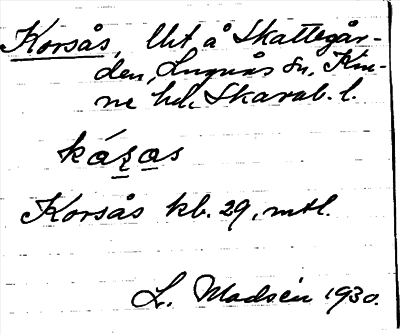 Korsås, Utt å Skattegår-
den, Lugnås sn, Kin-
ne hd. Skarab. l.
kásas
Korsås kb. 29, mtl.
L. Madsén 1930.